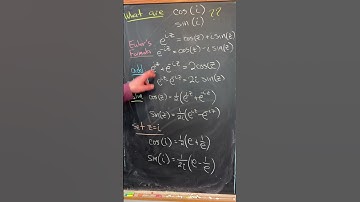 What are cos(i) ??
sin(i)
Euler's Formula e^{iz} = cos(z)+i sin(z)
e^{-iz} = cos(z)-i sin(z)
add e^{iz}+e^{-iz} = 2cos(z)
e^{iz}-e^{-iz} = 2i sin(z)
cos(z) = 1/2(e^{iz}+e^{-iz})
sin(z) = 1/2i(e^{iz}-e^{-iz})
Set z=i
cos(i) = 1/2(e+1/e)
sin(i) = 1/2i(e-1/e)